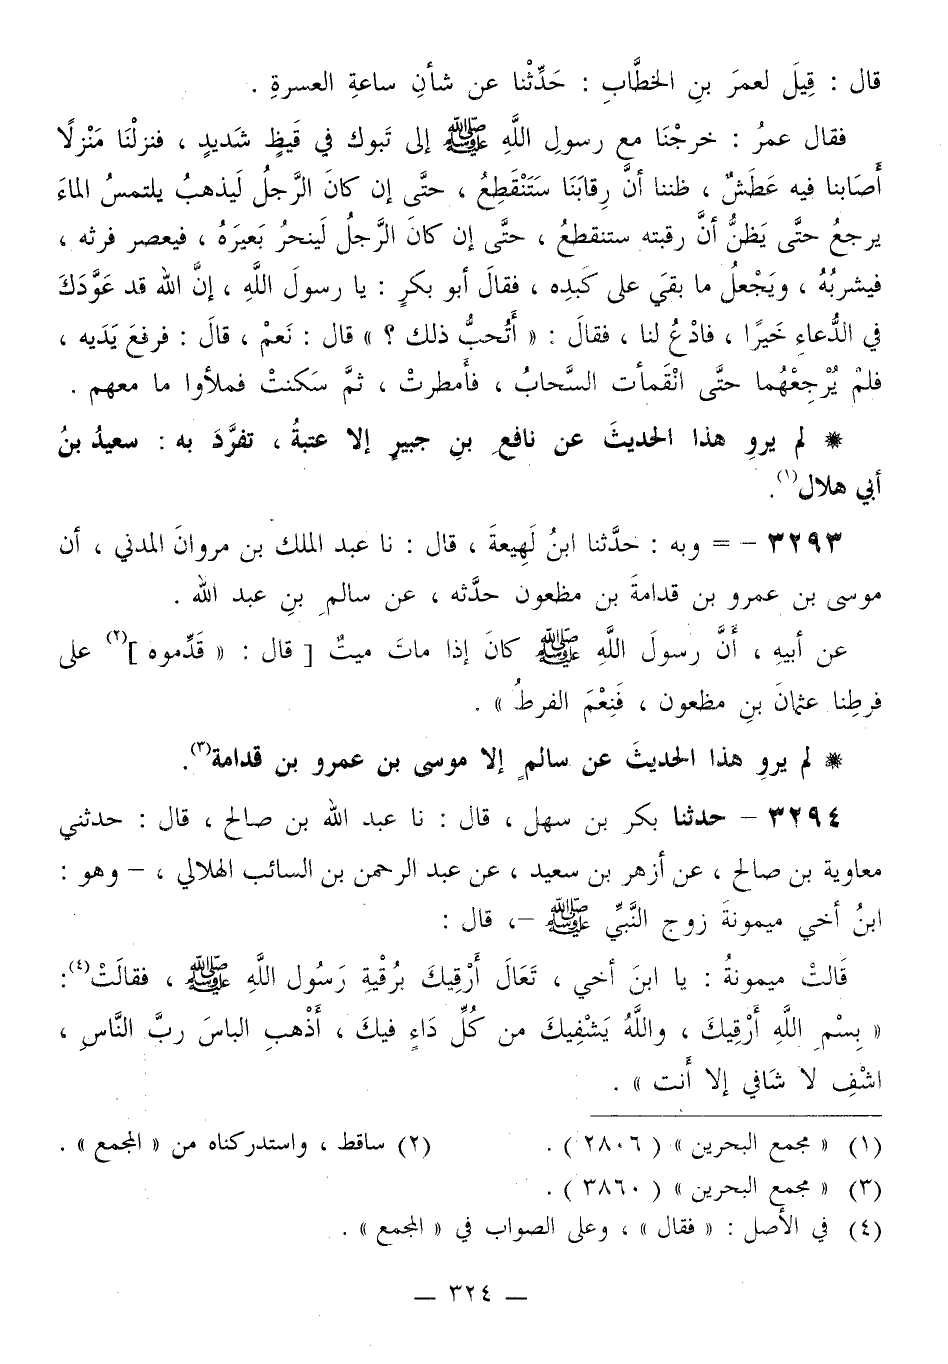 قال : قِيلَ لعمرَ بنِ الخطَّابِ : حَدِّثْنا عن شأنِ ساعةِ العسرةِ .
فقال عمرُ : خرجْنَا مع رسولِ اللَّهِ ﷺ إلى تَبوك في قَيظٍ شَديدٍ ، فنزلْنَا مَنْزلًا
أَصَابنا فيه عَطَشٌ ، ظننا أنَّ رِقابَنَا سَتَنْقَطِعُ ، حتَّى إن كانَ الرَّجلُ لَيذهبُ يلتمسُ الماءَ
يرجعُ حتَّى يَظنُّ أنَّ رقبته ستنقطعُ ، حتَّى إن كانَ الرَّجلُ لَينحرُ بَعيرَهُ ، فيعصر فرثه ،
فيشربُهُ ، ويَجْعلُ ما بقيَ على كَبدِه ، فقالَ أبو بكرٍ : يا رسولَ اللَّهِ ، إنَّ الله قد عَوَّدَكَ
في الدُّعاءِ خَيرًا ، فادْعُ لنا ، فقالَ : « أَتُحبُّ ذلك ؟ » قال : نَعمْ ، قالَ : فرفعَ يَدَيه ،
فلمْ يُرْجِعْهُما حتَّى انْقَمأت السَّحابُ ، فأَمطرتْ ، ثمَّ سَكنتْ فملأوا ما معهم .
* لم يروِ هذا الحديثَ عن نافعِ بنِ جبيرٍ إلا عتبةُ ، تفرَّدَ به : سعيدُ بنُ
أبي هلال(١).
٣٢٩٣ – = وبه : حدَّثنا ابنُ لَهِيعةَ ، قال : نا عبد الملك بن مروانَ المدني ، أن
موسى بن عمرو بن قدامةَ بن مظعون حدَّثه ، عن سالمِ بنِ عبد الله .
عن أبيهِ ، أَنَّ رسولَ اللَّهِ ﷺ كانَ إذا ماتَ ميتٌ [ قال : « قَدِّموه ](٢) على
فرطِنا عثمانَ بنِ مظعون ، فَنِعْمَ الفرطُ » .
* لم يروِ هذا الحديثَ عن سالمٍ إلا موسى بن عمرو بن قدامة(٣).
٣٢٩٤ – حدثنا بكر بن سهل ، قال : نا عبد الله بن صالح ، قال : حدثني
معاوية بن صالح ، عن أزهر بن سعيد ، عن عبد الرحمن بن السائب الهلالي ، – وهو :
ابنُ أخي ميمونةَ زوج النَّبيِّ ﷺ –، قال :
قَالتْ ميمونةُ : يا ابنَ أخي ، تَعَالَ أَرْقِيكَ بِرُقْيةِ رَسُول اللَّهِ ﷺ ، فقالَتْ(٤):
« بِسْمِ اللَّهِ أَرْقِيكَ ، واللَّهُ يَشْفِيكَ من كُلِّ دَاءٍ فيكَ ، أَذْهبِ الباسَ ربَّ النَّاسِ ،
اشْفِ لا شَافي إلا أَنت » .
(١) « مجمع البحرين » ( ٢٨٠٦ ) . (٢) ساقط ، واستدركناه من « المجمع » .
(٣) « مجمع البحرين » ( ٣٨٦٠ ) .
(٤) في الأصل : « فقال » ، وعلى الصواب في « المجمع » .
– ٣٢٤ –